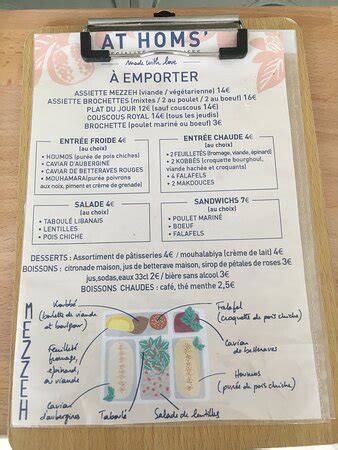 AT HOMS'
made with love
À EMPORTER
ASSIETTE MEZZEH (viande / végétarienne) 14€
ASSIETTE BROCHETTES (mixtes / 2 au poulet / 2 au boeuf) 16€
PLAT DU JOUR 12€ (sauf couscous 14€)
COUSCOUS ROYAL 14€ (tous les jeudis)
BROCHETTE (poulet mariné ou boeuf) 3€
ENTRÉE FROIDE 4€
(au choix)
• HOUMOS (purée de pois chiches)
• CAVIAR D'AUBERGINE
• CAVIAR DE BETTERAVES ROUGES
• MOUHAMARA (purée poivrons
aux noix, piment et crème de grenade)
ENTRÉE CHAUDE 4€
(au choix)
• 2 FEUILLETÉS (fromage, viande, épinard)
• 2 KOBBÉS (croquette bourghoul,
viande hachée et croquants)
• 4 FALAFELS
• 2 MAKDOUCES
SALADE 4€
(au choix)
• TABOULÉ LIBANAIS
• LENTILLES
• POIS CHICHE
SANDWICHS 7€
(au choix)
• POULET MARINÉ
• BOEUF
• FALAFELS
DESSERTS : Assortiment de pâtisseries 4€ / mouhalabiya (crème de lait) 4€
BOISSONS : citronade maison, jus de betterave maison, sirop de pétales de roses 3€
jus,sodas,eaux 33cl 2€ / bière sans alcool 3€
BOISSONS CHAUDES : café, thé menthe 2,5€
MEZZEH
Kobbé
(boulette de viande
et boulgour)
Falafel
(croquette de pois chiche)
Feuilleté
fromage,
épinard,
ou viande
Caviar
de betteraves
Houmos
(purée de pois chiche)
Caviar
d'aubergines
Taboulé
Salade de lentilles